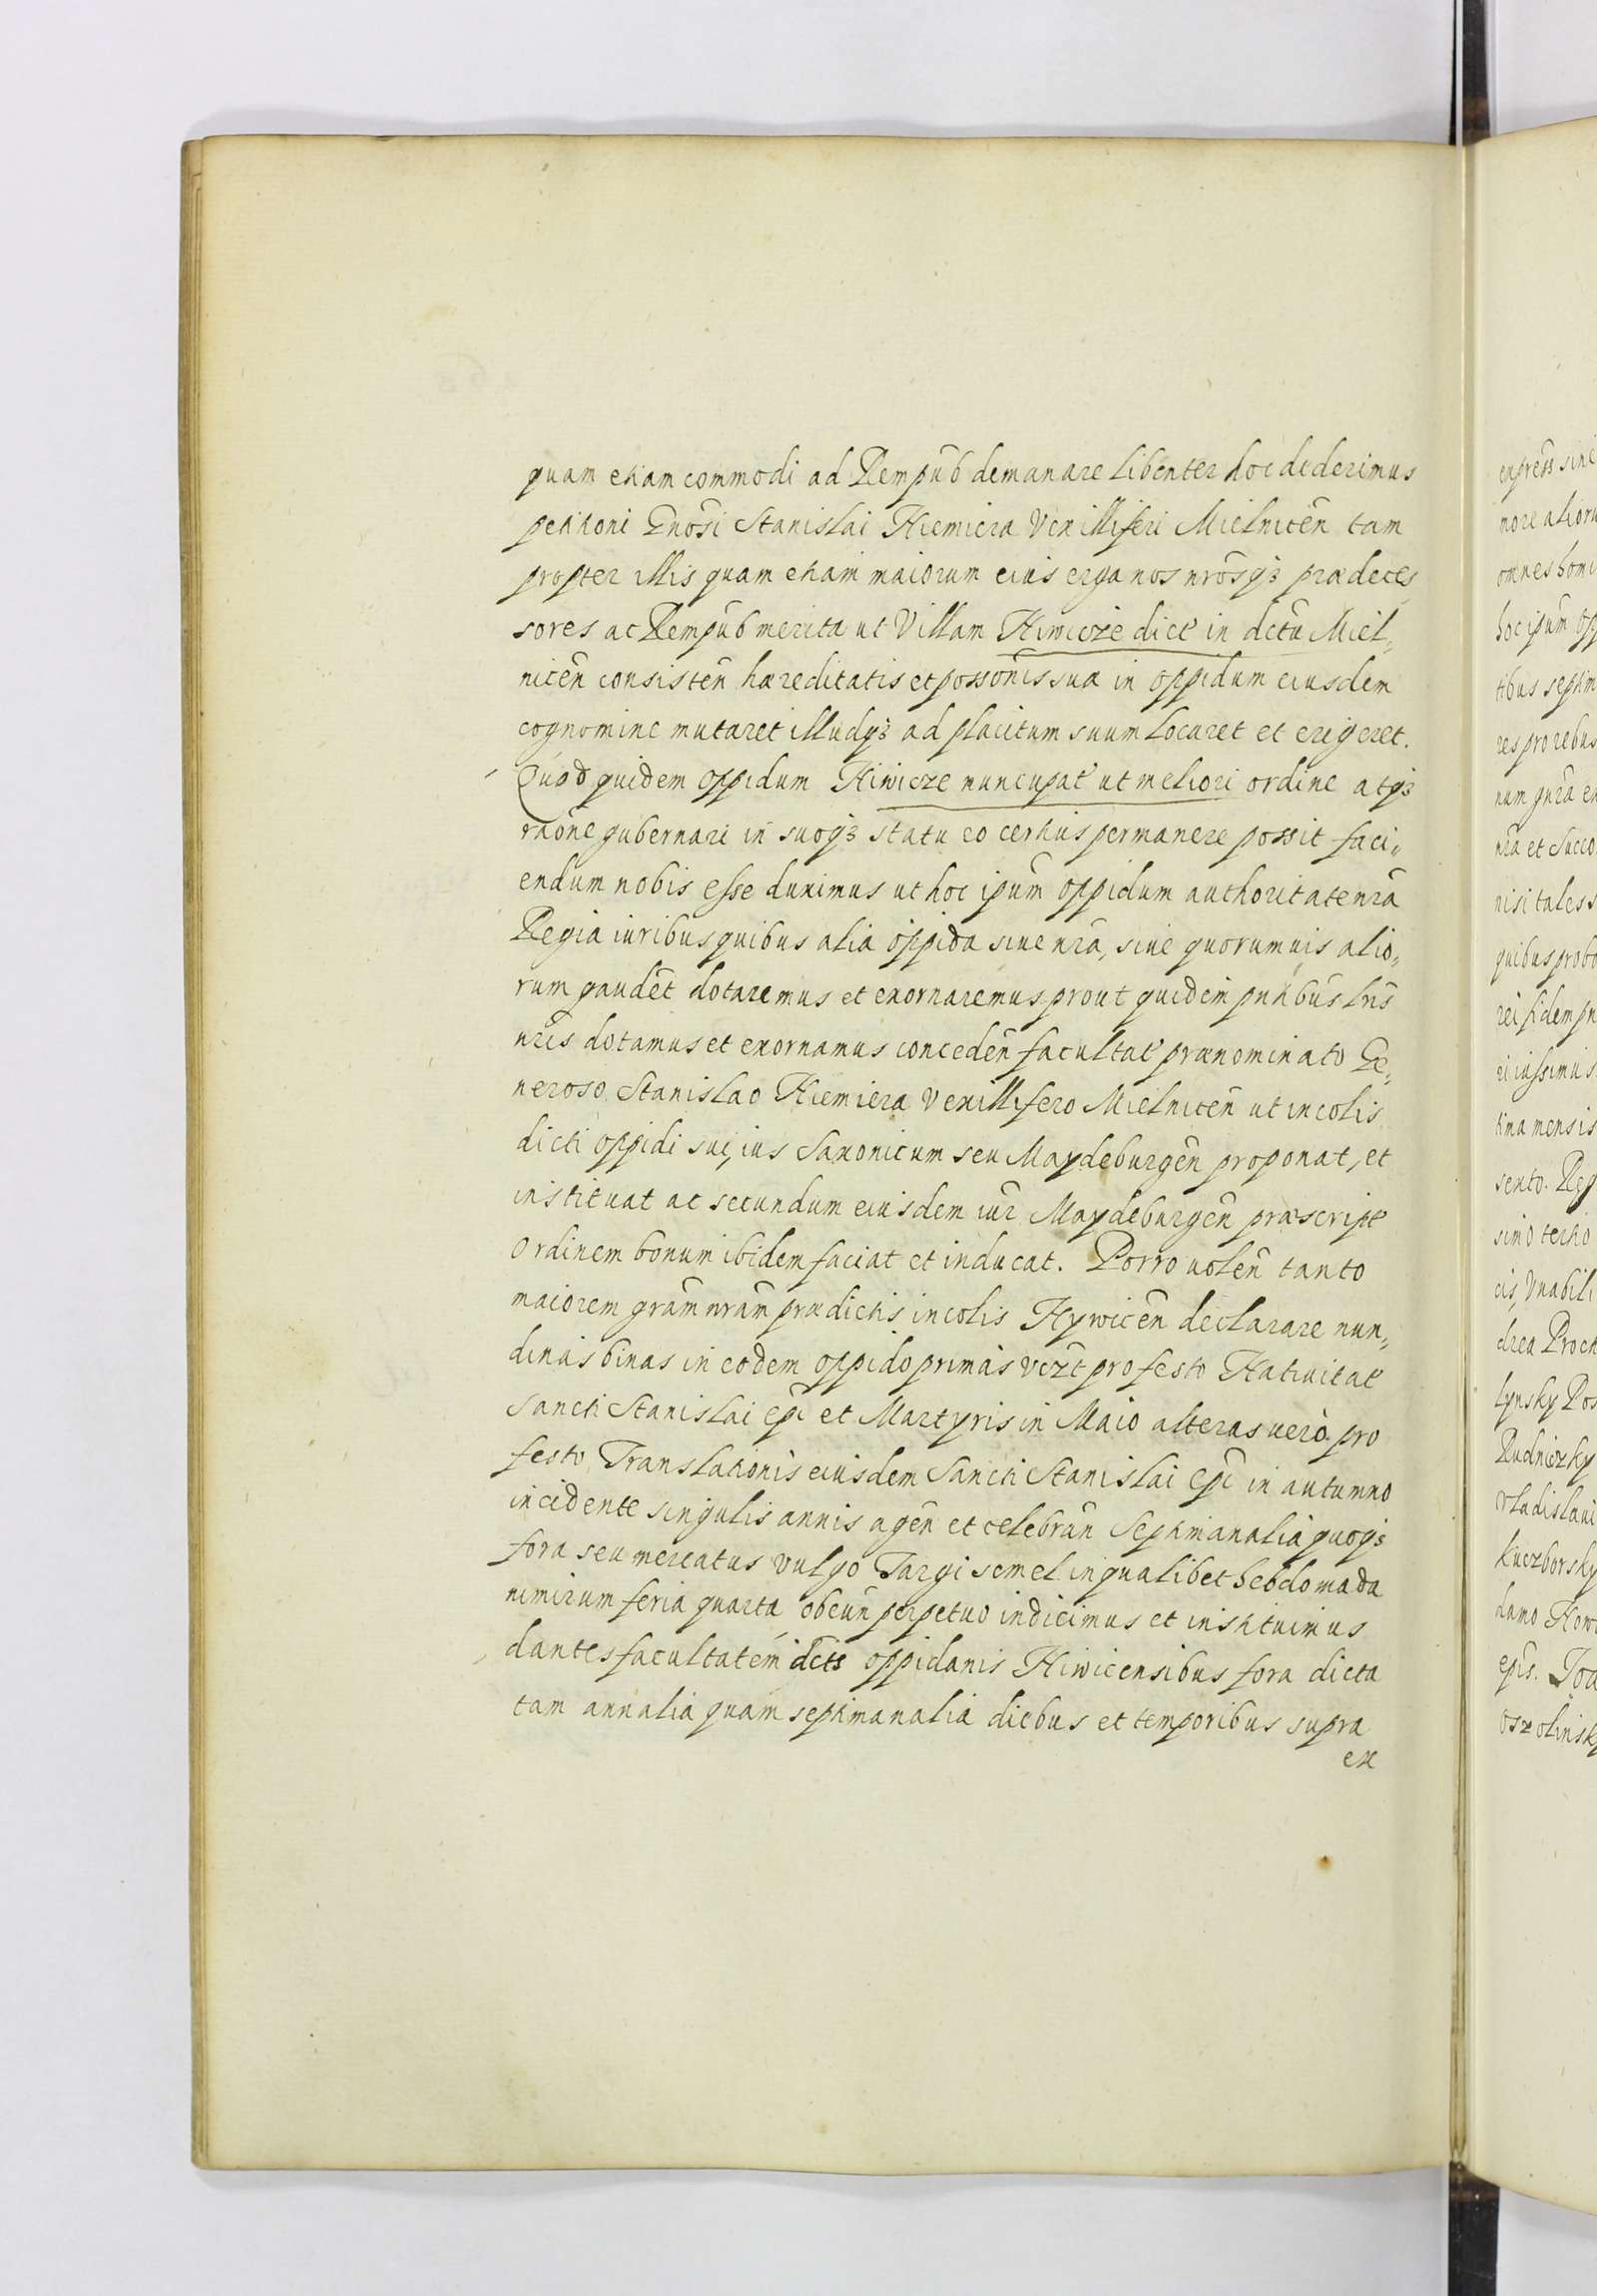 quam etiam commodi ad Rempub̃ demanare libenter hoc dederimus
petitioni Gñosi Stanislai Niemiera Vexilliferi Mielnicen̄ tam
propter illis quam etiam maiorum eius erga nos nr̃osq3 prædeces,
sores ac Rempub̃ merita ut Villam Niwicze dict' in dctũ Miel,,
nicen̄ consisten̄ hæreditatis et posson̄is suæ in oppidum eiusdem
cognomine mutaret illudq3 ad placitum suum locaret et erigeret.
Quod quidem oppidum Niwicze nuncupat' ut meliori ordine atq3
rãone gubernari in suoq3 statu eo certius permanere possit faci,,
endum nobis esse duximus ut hoc ipũm oppidum authoritate nrã
Regia iuribus quibus alia oppida siue nrã, siue quorumuis alio,,
rum gaudẽt dotaremus et exornaremus prout quidem pñtibus lr̃is
nr̃is dotamus et exornamus conceden̄ facultat' prænominato Ge,,
neroso Stanislao Niemiera Vexillifero Mielnicen̄ ut incolis
dicti oppidi sui, ius Saxonicum seu Maydeburgen̄ proponat, et
instituat ac secundum eiusdem iur̃ Maydeburgen̄ præscript'
ordinem bonum ibidem faciat et inducat. Porro uolen̄ tanto
maiorem grãm nrãm prædictis incolis Nywicen̄ declarare nun,,
dinas binas in eodem oppido primas vezt̃ pro festo Natiuitat'
Sancti Stanislai Ep̃i et Martyris in Maio alteras uerò pro
festo Translationis eiusdem Sancti Stanislai Ep̃i in autumno
incidente singulis annis agen̄ et celebran̄ Septimanalia quoq3
fora seu mercatus vulgo Targi semel in qualibet hebdomada
nimirum feria quarta obeun̄ perpetuo indicimus et instituimus
dantes facultatem dctis oppidanis Niwicensibus fora dicta
tam annalia quam septimanalia diebus et temporibus supra
ex
expres̃s sine
more alioru
omnes homi
hoc ipũm opp
tibus septim
res pro rebus
num gñra
nrã et Succo
nisi tales s
quibus probo
rei fidem
ri iussimus
tima mensis
sento. Reg
simo tertio
cis, Vnabili
drea Proch
lynsky Pos
Rudnicky
Vladislaui
Kuczborsky
damo Now
ep̃is. Joa
Oszolinsky